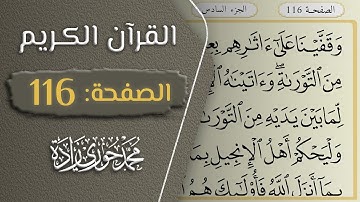 القرآن الكريم
الصفحة: 116
محمد حوري زادة
الصفحة 116
الجزء السادس
وَقَفَّيْنَا عَلَىٰٓ ءَاثَٰرِهِم بِعِ
مِنَ ٱلتَّوْرَىٰةِ ۖ وَءَاتَيْنَٰهُ ٱلْإِ
لِّمَا بَيْنَ يَدَيْهِ مِنَ ٱلتَّوْرَ
وَلْيَحْكُمْ أَهْلُ ٱلْإِنجِيلِ بِمَا
بِمَآ أَنزَلَ ٱللَّهُ فَأُو۟لَٰٓئِكَ هُمُ